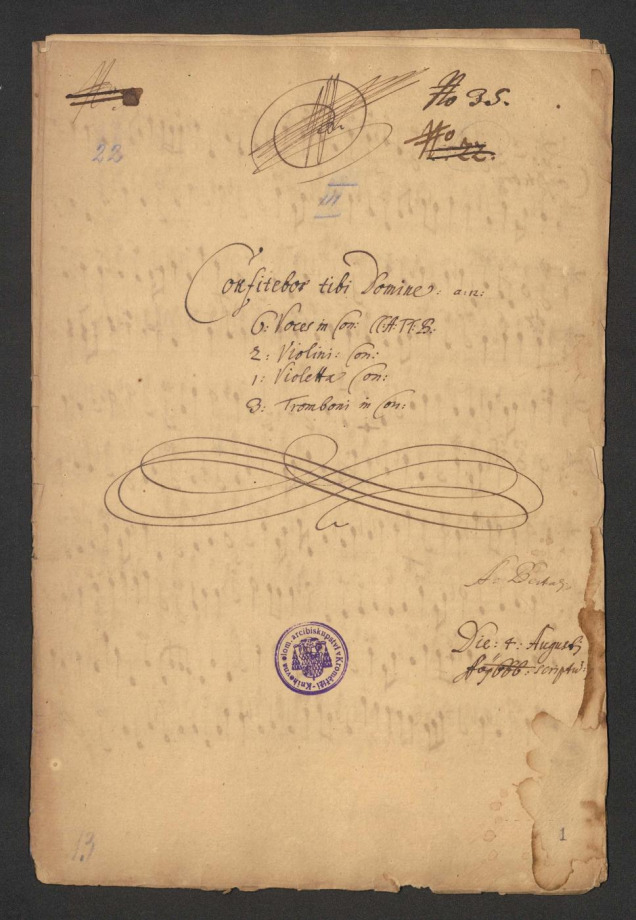 No 35.
No 22.
22
III
Confitebor tibi Domine: a: 12:
6: Voces in Con: CC: A: TT: B:
2: Violini: Con:
1: Violetta Con:
3: Tromboni in Con:
Die: 4: Augusti
scriptu:
Knihovna olom. arcibiskupství v Kroměříži
13
1